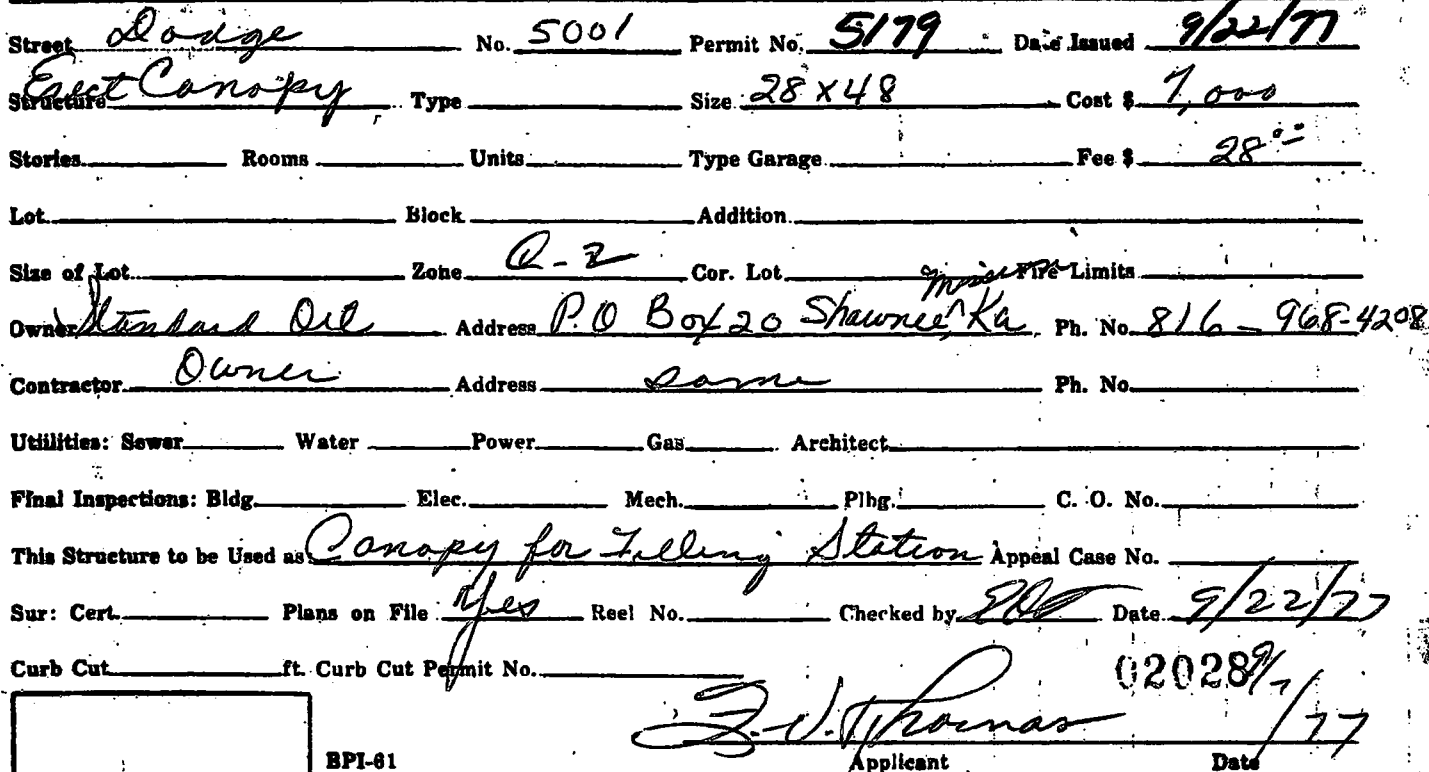 Street Dodge No. 5001 Permit No. 5179 Date Issued 9/22/77
Structure Erect Canopy Type Size 28 x 48 Cost $ 7,000
Stories Rooms Units Type Garage Fee $ 28.00
Lot Block Addition
Size of Lot Zone Q-2 Cor. Lot Fire Limits
Owner Standard Oil Address P.O Box 20 Shawnee Mission Ka Ph. No. 816-968-4208
Contractor Owner Address same Ph. No.
Utiilities: Sewer Water Power Gas Architect
Final Inspections: Bldg. Elec. Mech. Plbg. C. O. No.
This Structure to be Used as Canopy for Filling Station Appeal Case No.
Sur: Cert. Plans on File Yes Reel No. Checked by Date 9/22/77
Curb Cut ft. Curb Cut Permit No. 02028 9/7/77
Thomas
BPI-61 Applicant Date